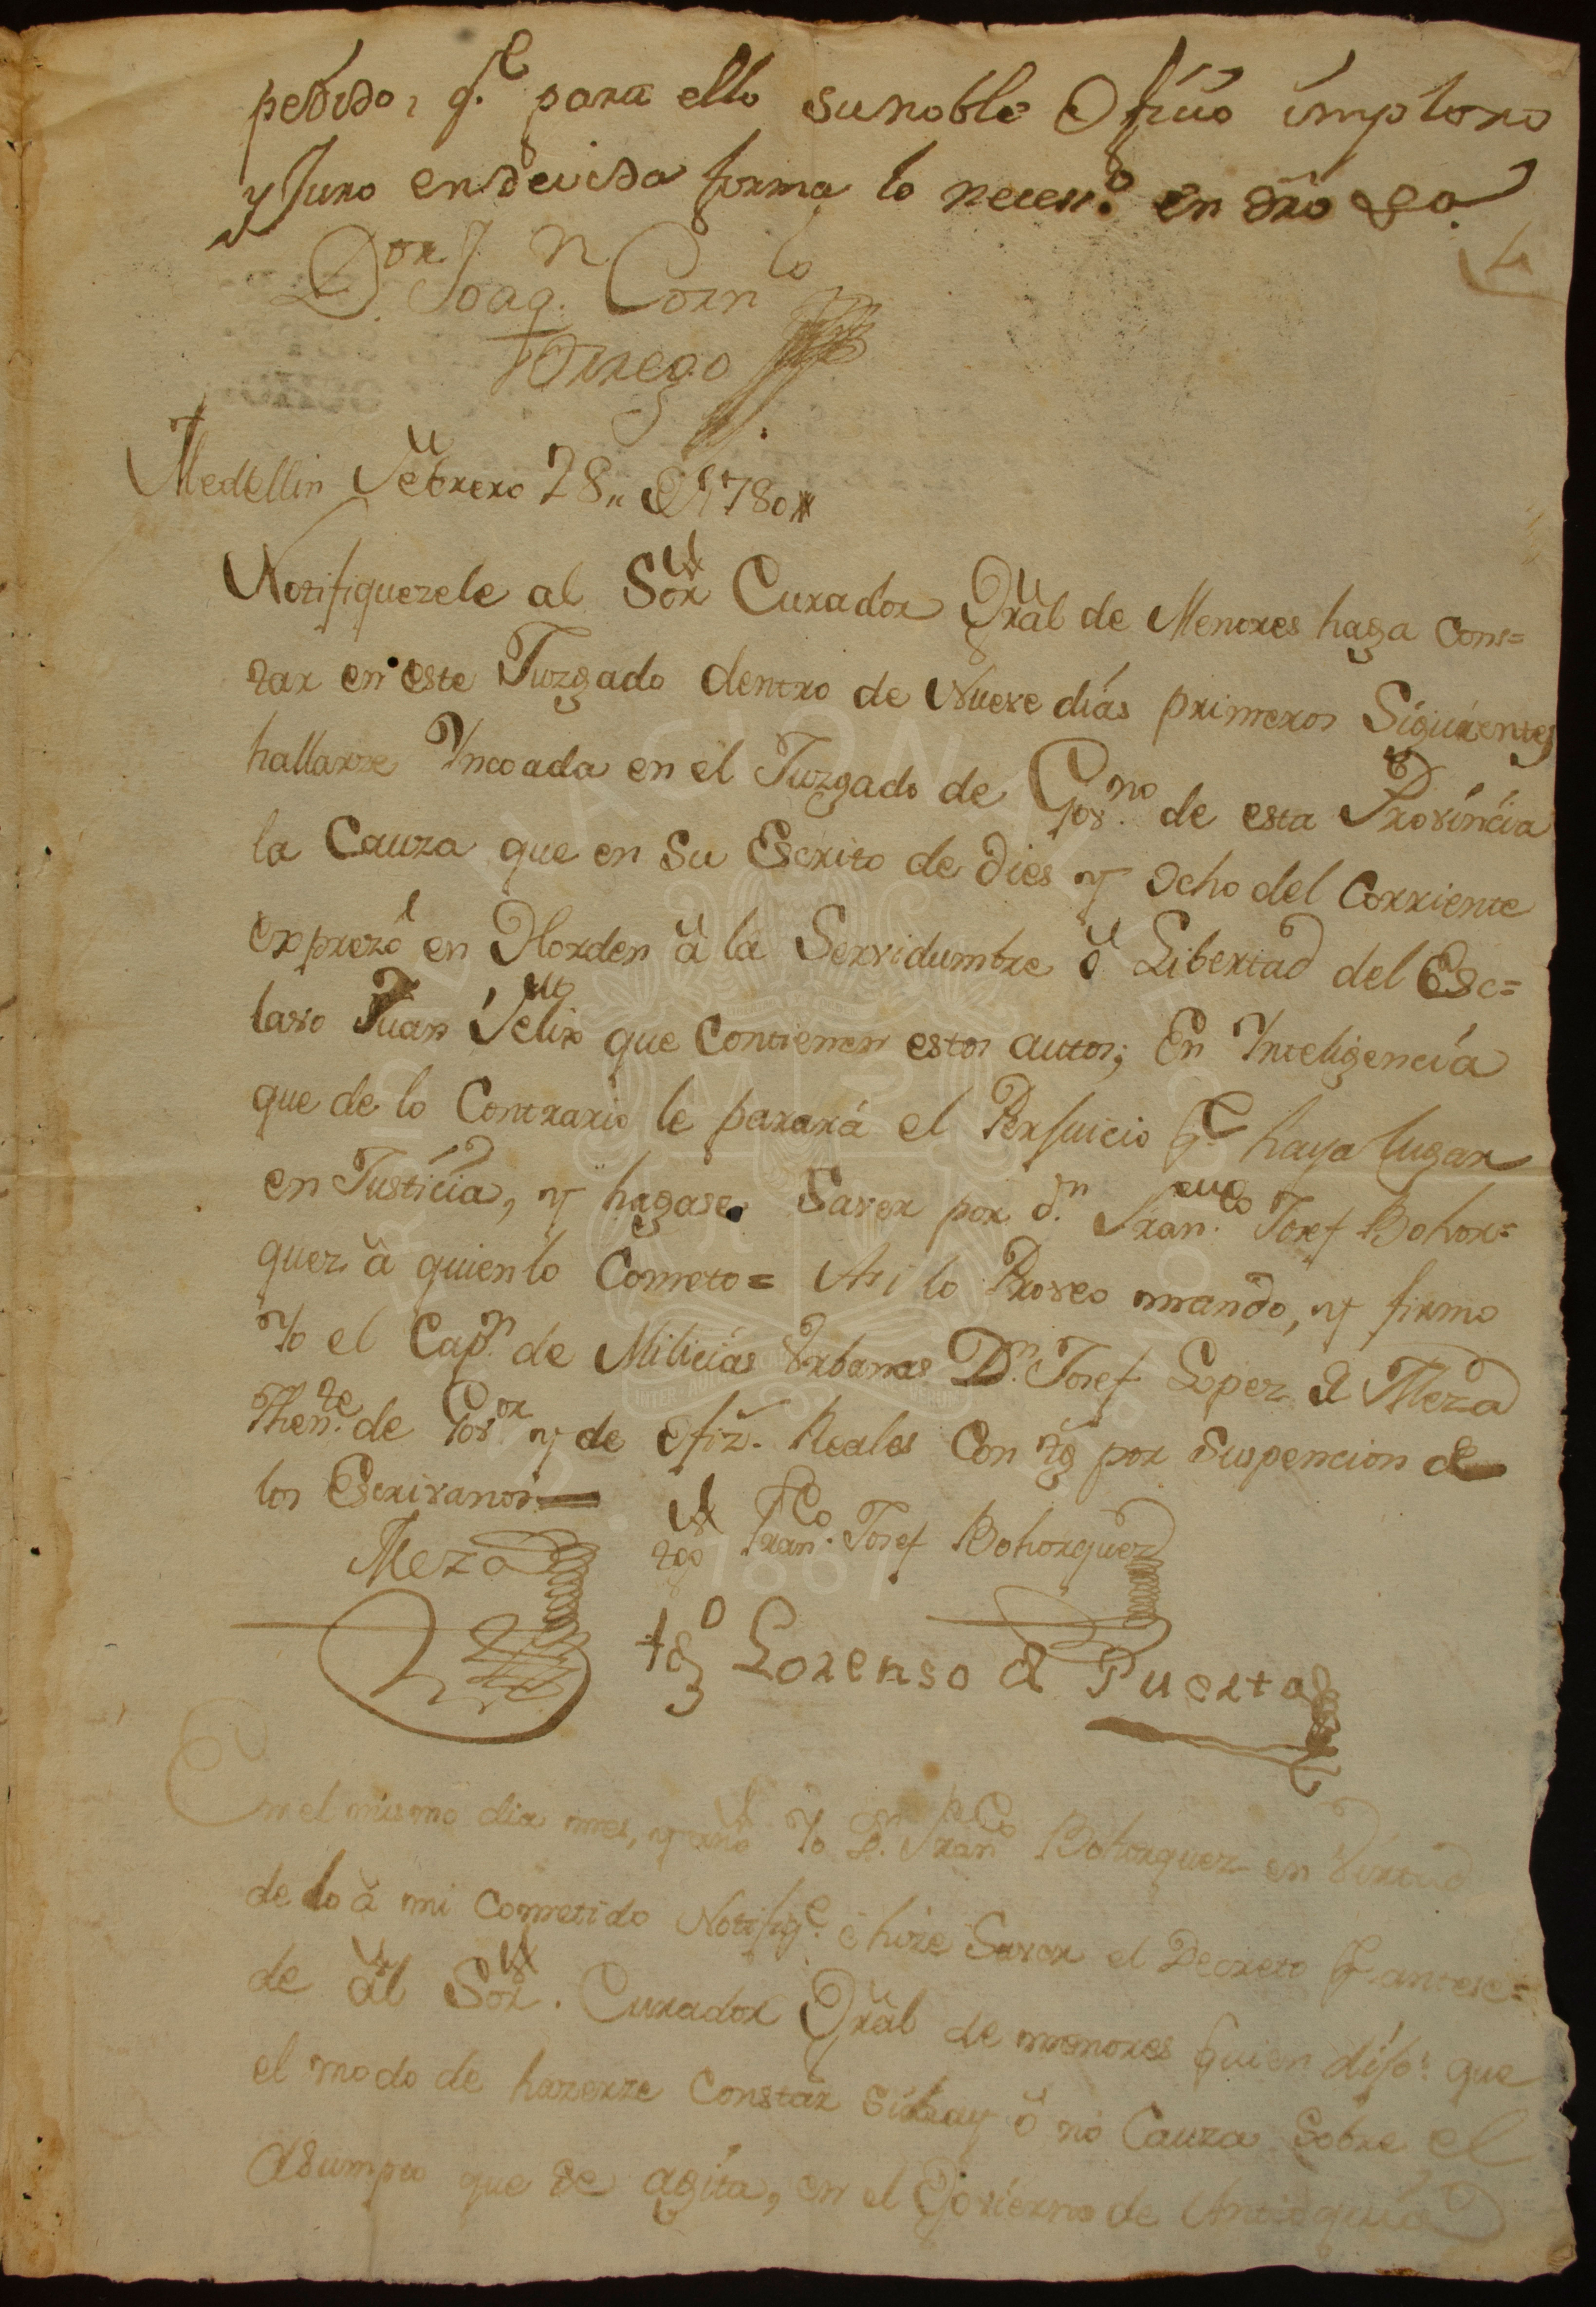 pedido, q.e para ello su noble Ofiçio imploro
y Juro en devida forma lo neces.o en dro &a.
D.or Joaq.n Corn.lo
Orrego
Medellin Febrero 28,, de 1780,,
Notifiquezele al Sor Curador Gral de Menores haga cons=
tar en este Juzgado dentro de Nueve dias primeros Siguientes
hallarze Yncoada en el Juzgado de Gov.no de esta Provincia
la Cauza que en su Escrito de dies y ocho del Corriente
exprezó en Horden à la Servidumbre ò Libertad del Esc=
lavo Juan Felix que Contienen estos autos; En Ynteligencia
que de lo Contrario le parará el Perjuicio q.e haya lugar
en Justicia, y hagase Saver por d.n Fran.co Josef Bohor=
quez à quien lo Cometo = Asi lo Proveo mando, y firmo
Yo el Cap.n de Milicias Urbanas D.n Josef Lopez de Meza
Then.te de Gov.or y de Ofiz. Reales Con tg por Suspencion de
los Escrivanos
Meza
tgo Fran.co Josef Bohorquez
tgo Lorenso de Puerta
En el mismo dia mes, y año Yo D.n Fran.co Bohorquez en Virtud
de lo à mi Cometido Notifiq.e è hize Saver el Decreto q antese=
de àl Sor. Curador Gral de menores quien dijo: que
el modo de hazerze Constar si hay ò nó Cauza Sobre el
Asumpto que se agita, en el Govierno de Antioquia